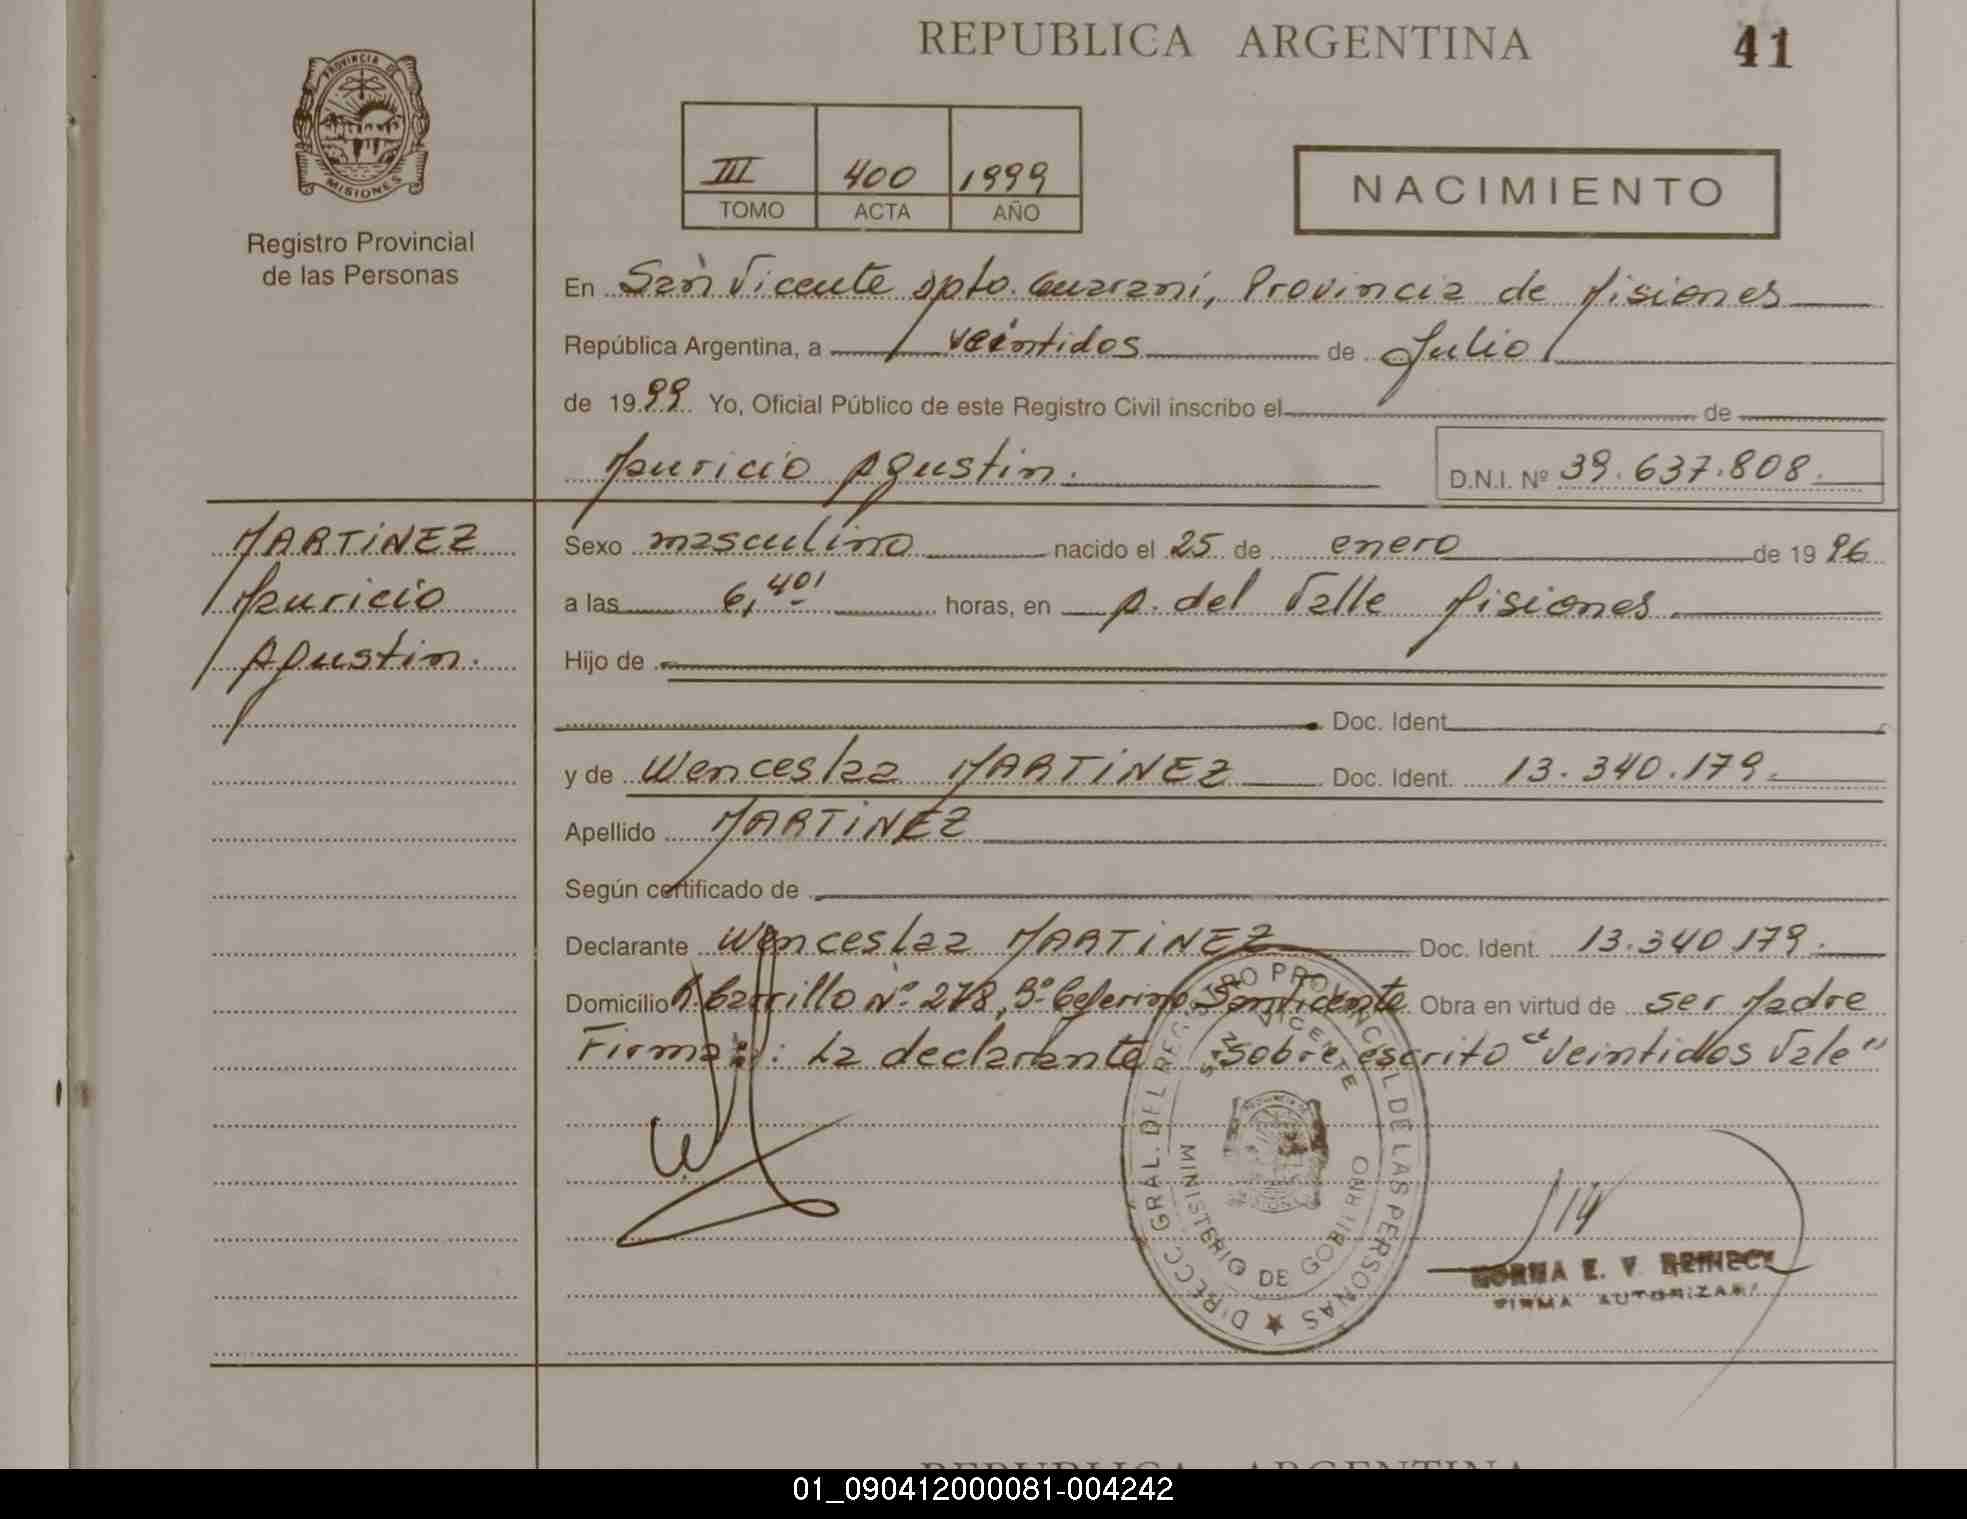 REPUBLICA ARGENTINA
41
PROVINCIA DE
MISIONES
Registro Provincial
de las Personas
III 400 1999
TOMO ACTA AÑO
NACIMIENTO
En San Vicente Dpto. Guaraní, Provincia de Misiones
República Argentina, a veintidos de Julio
de 1999 Yo, Oficial Público de este Registro Civil inscribo el de
Mauricio Agustin.
D.N.I. Nº 39.637.808.
MARTiNEZ
Mauricio
Agustin.
Sexo masculino nacido el 25 de enero de 1996
a las 6,40' horas, en A. del Valle Misiones.
Hijo de
Doc. Ident.
y de Wenceslaa MARTiNEZ Doc. Ident. 13.340.179.
Apellido MARTiNEZ
Según certificado de
Declarante Wenceslaa MARTiNEZ Doc. Ident. 13.340.179.
Domicilio Carrillo Nº 278, Bº Ceferino San Vicente Obra en virtud de ser Madre
Firma: La declarante Sobre escrito "Veintidos Vale"
DIRECC. GRAL. DEL REGISTRO PROVINCIAL DE LAS PERSONAS
SAN VICENTE
MINISTERIO DE GOBIERNO
NORMA E. V. REINECK
FIRMA AUTORIZADA
REPUBLICA ARGENTINA
01_090412000081-004242